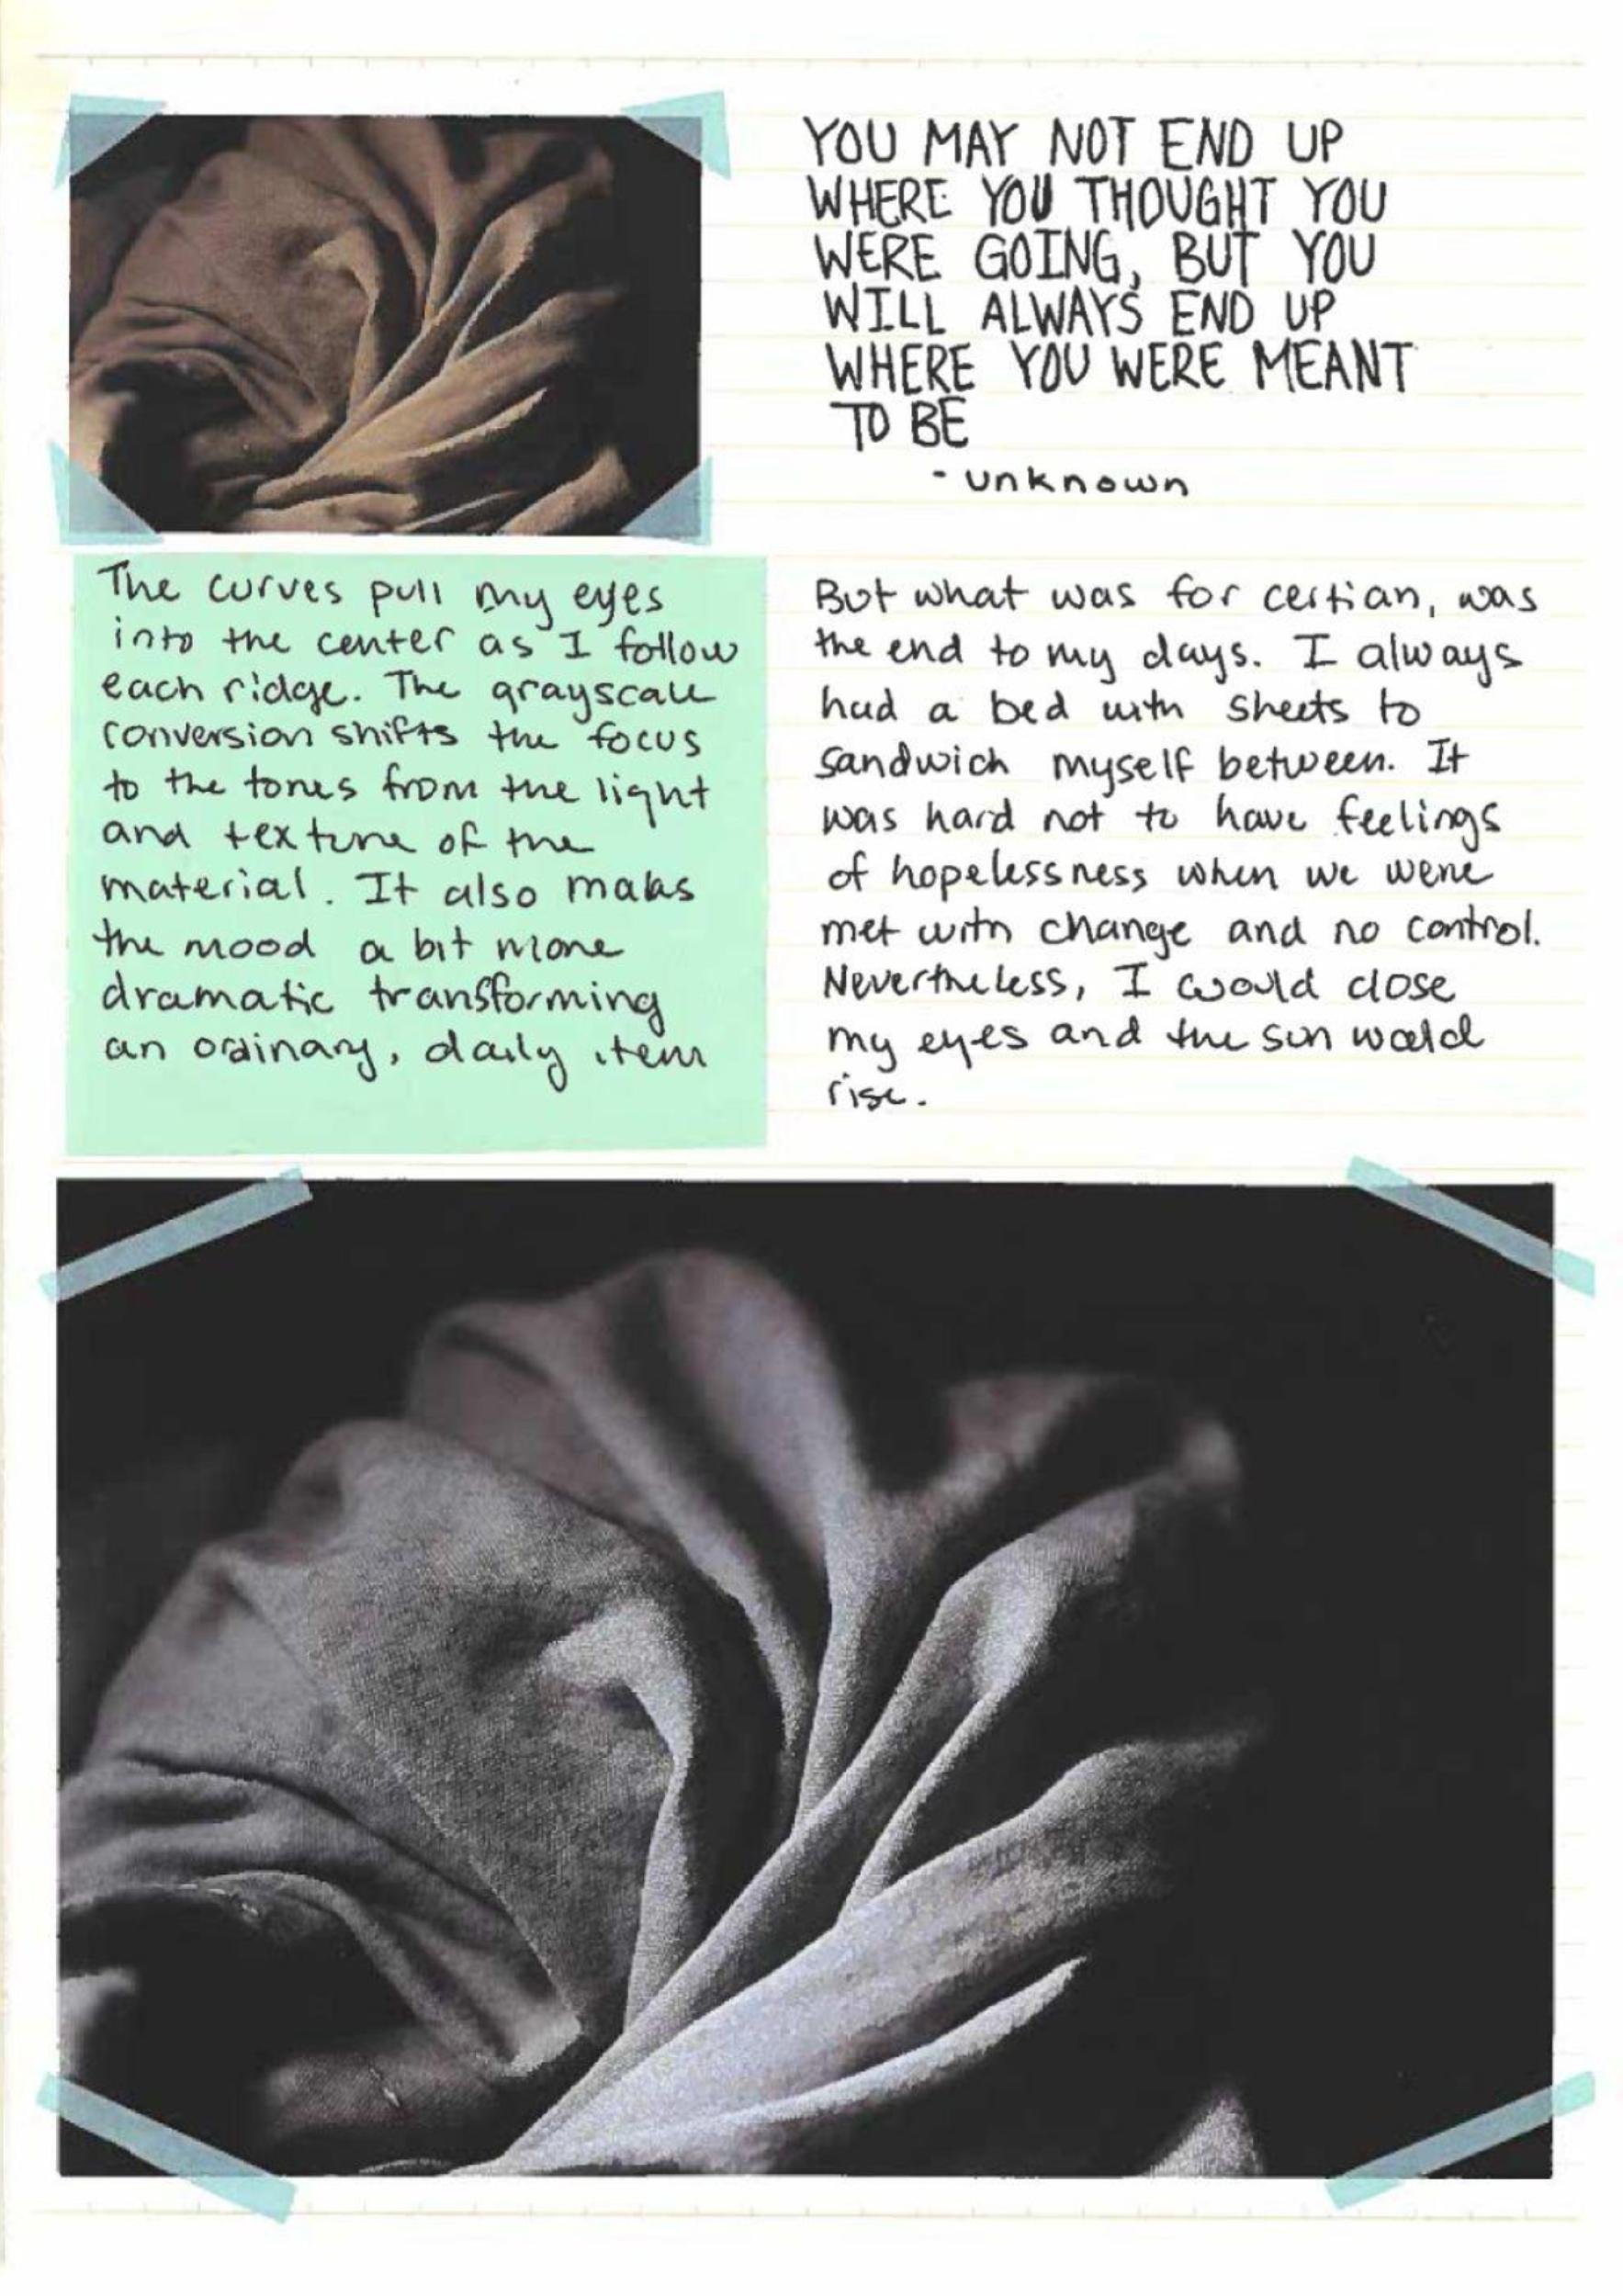 YOU MAY NOT END UP
WHERE YOU THOUGHT YOU
WERE GOING, BUT YOU
WILL ALWAYS END UP
WHERE YOU WERE MEANT
TO BE
- unknown
The curves pull my eyes
into the center as I follow
each ridge. The grayscale
conversion shifts the focus
to the tones from the light
and texture of the
material. It also makes
the mood a bit more
dramatic transforming
an ordinary, daily item
But what was for certian, was
the end to my days. I always
had a bed with sheets to
sandwich myself between. It
was hard not to have feelings
of hopelessness when we were
met with change and no control.
Nevertheless, I would close
my eyes and the sun would
rise.